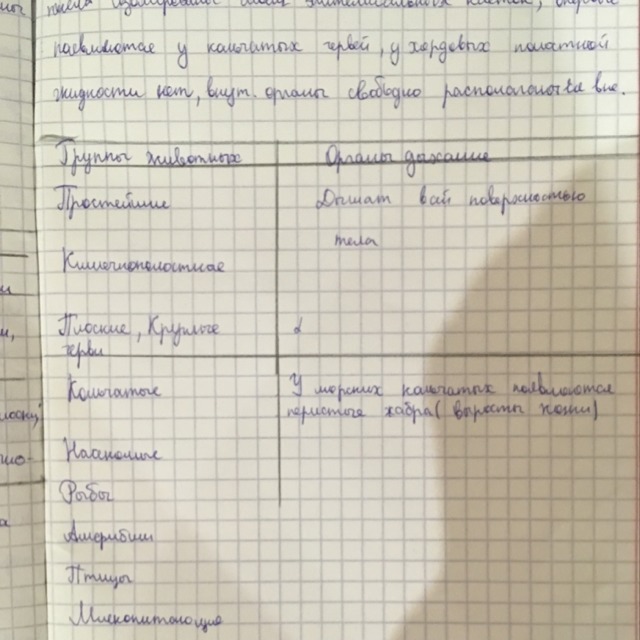 тела
появляются у кольчатых червей, у хордовых полостной
жидкости нет, внут. органы свободно располагаются вне.
Группы животных Органы дыхание
Простейшие Дышат всей поверхностью
тела
Кишечнополостные
Плоские, Круглые
черви
Кольчатые У морских кольчатых появляются
перистые жабра (выросты кожи)
Насекомые
Рыбы
Амфибии
Птицы
Млекопитающие